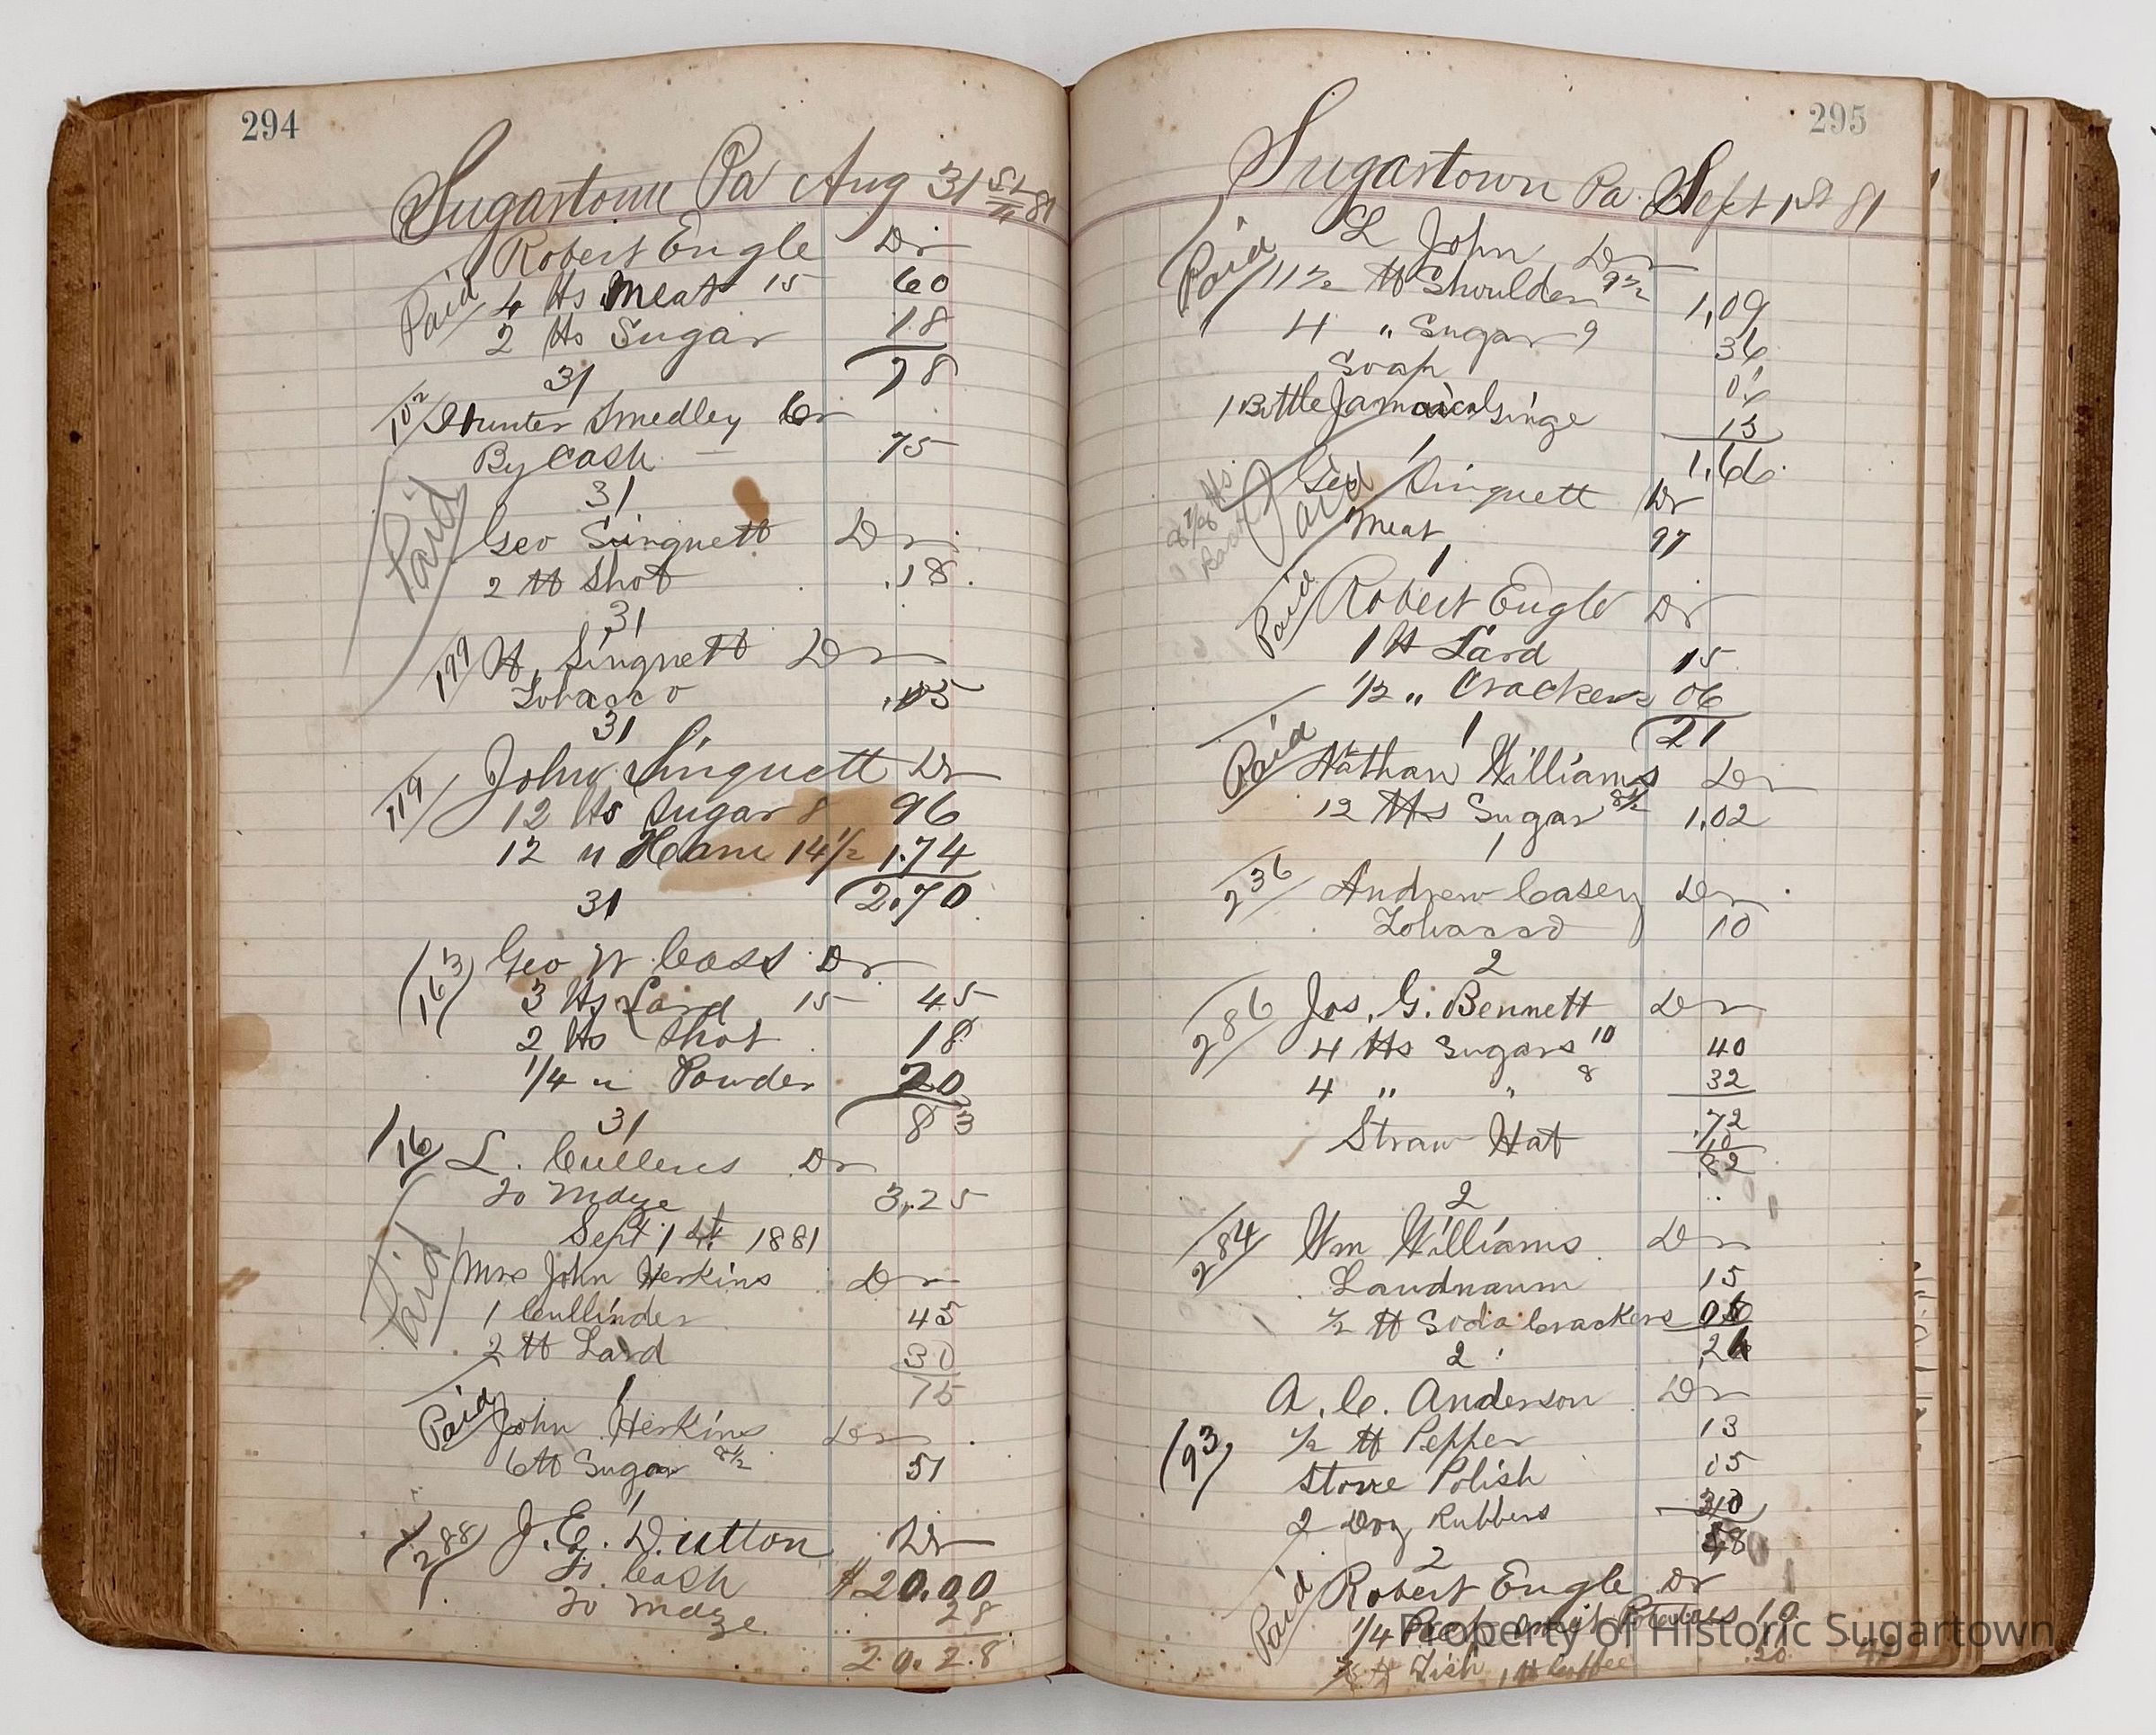 294
Sugartown Pa Aug 31st 81
Robert Engle Dr
Paid 4 lbs Meat 15 60
2 lbs Sugar 18
31 78
102 Hunter Smedley Cr
By Cash 75
31
Paid Geo Singuett Dr
2 lb Shot .18
31
199 H. Singuett Dr
Tobacco .05
31
114 John Singuett Dr
12 lbs Sugar 8 96
12 " Ham 14 1/2 1.74
31 2.70
163 Geo W Cass Dr
3 lbs Lard 15 45
2 lbs Shot 18
1/4 " Powder 20
31 83
16 L. Cullens Dr
To Mdze 3.25
Sept 1st 1881
Paid Mrs John Herkins Dr
1 Cullinder 45
2 lb Lard 30
1 75
Paid John Herkins Dr
6 lb Sugar 8 1/2 51
1
288 J. E. Dutton Dr
To Cash $20.00
To Mdze 28
20.28
295
Sugartown Pa. Sept 1st 81
L John Dr
Paid 11 1/2 lb Shoulder 9 1/2 1,09
4 " Sugar 9 36
Soap 06
1 Bottle Jamaica Ginge 15
1 1,66
Paid Geo Singuett Dr
Meat 97
1
Paid Robert Engle Dr
1 lb Lard 15
1/2 " Crackers 06
1 21
Paid Nathan Williams Dr
12 lbs Sugar 8 1/2 1,02
1
236 Andrew Casey Dr
Tobacco 10
2
286 Jos. G. Bennett Dr
4 lbs Sugars 10 40
4 " " 8 32
.72
Straw Hat 10
82
2
284 Wm Williams Dr
Laudnaum 15
1/2 lb Soda Crackers 06
2 21
A. C. Anderson Dr
93 1/2 lb Pepper 13
Stove Polish 05
2 Doz Rubbers 30
48
2
Paid Robert Engle Dr
1/4 Potatoes 10
Fish 1 lb Coffee 20
Property of Historic Sugartown